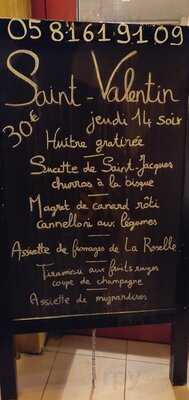 05 81 61 91 09
Saint-Valentin
jeudi 14 soir
30€
Huître gratinée
Sucette de Saint-Jacques
churros à la bisque
Magret de canard rôti
cannelloni aux légumes
Assiette de fromages de La Roselle
Tiramisu aux fruits rouges
coupe de champagne
Assiette de mignardises